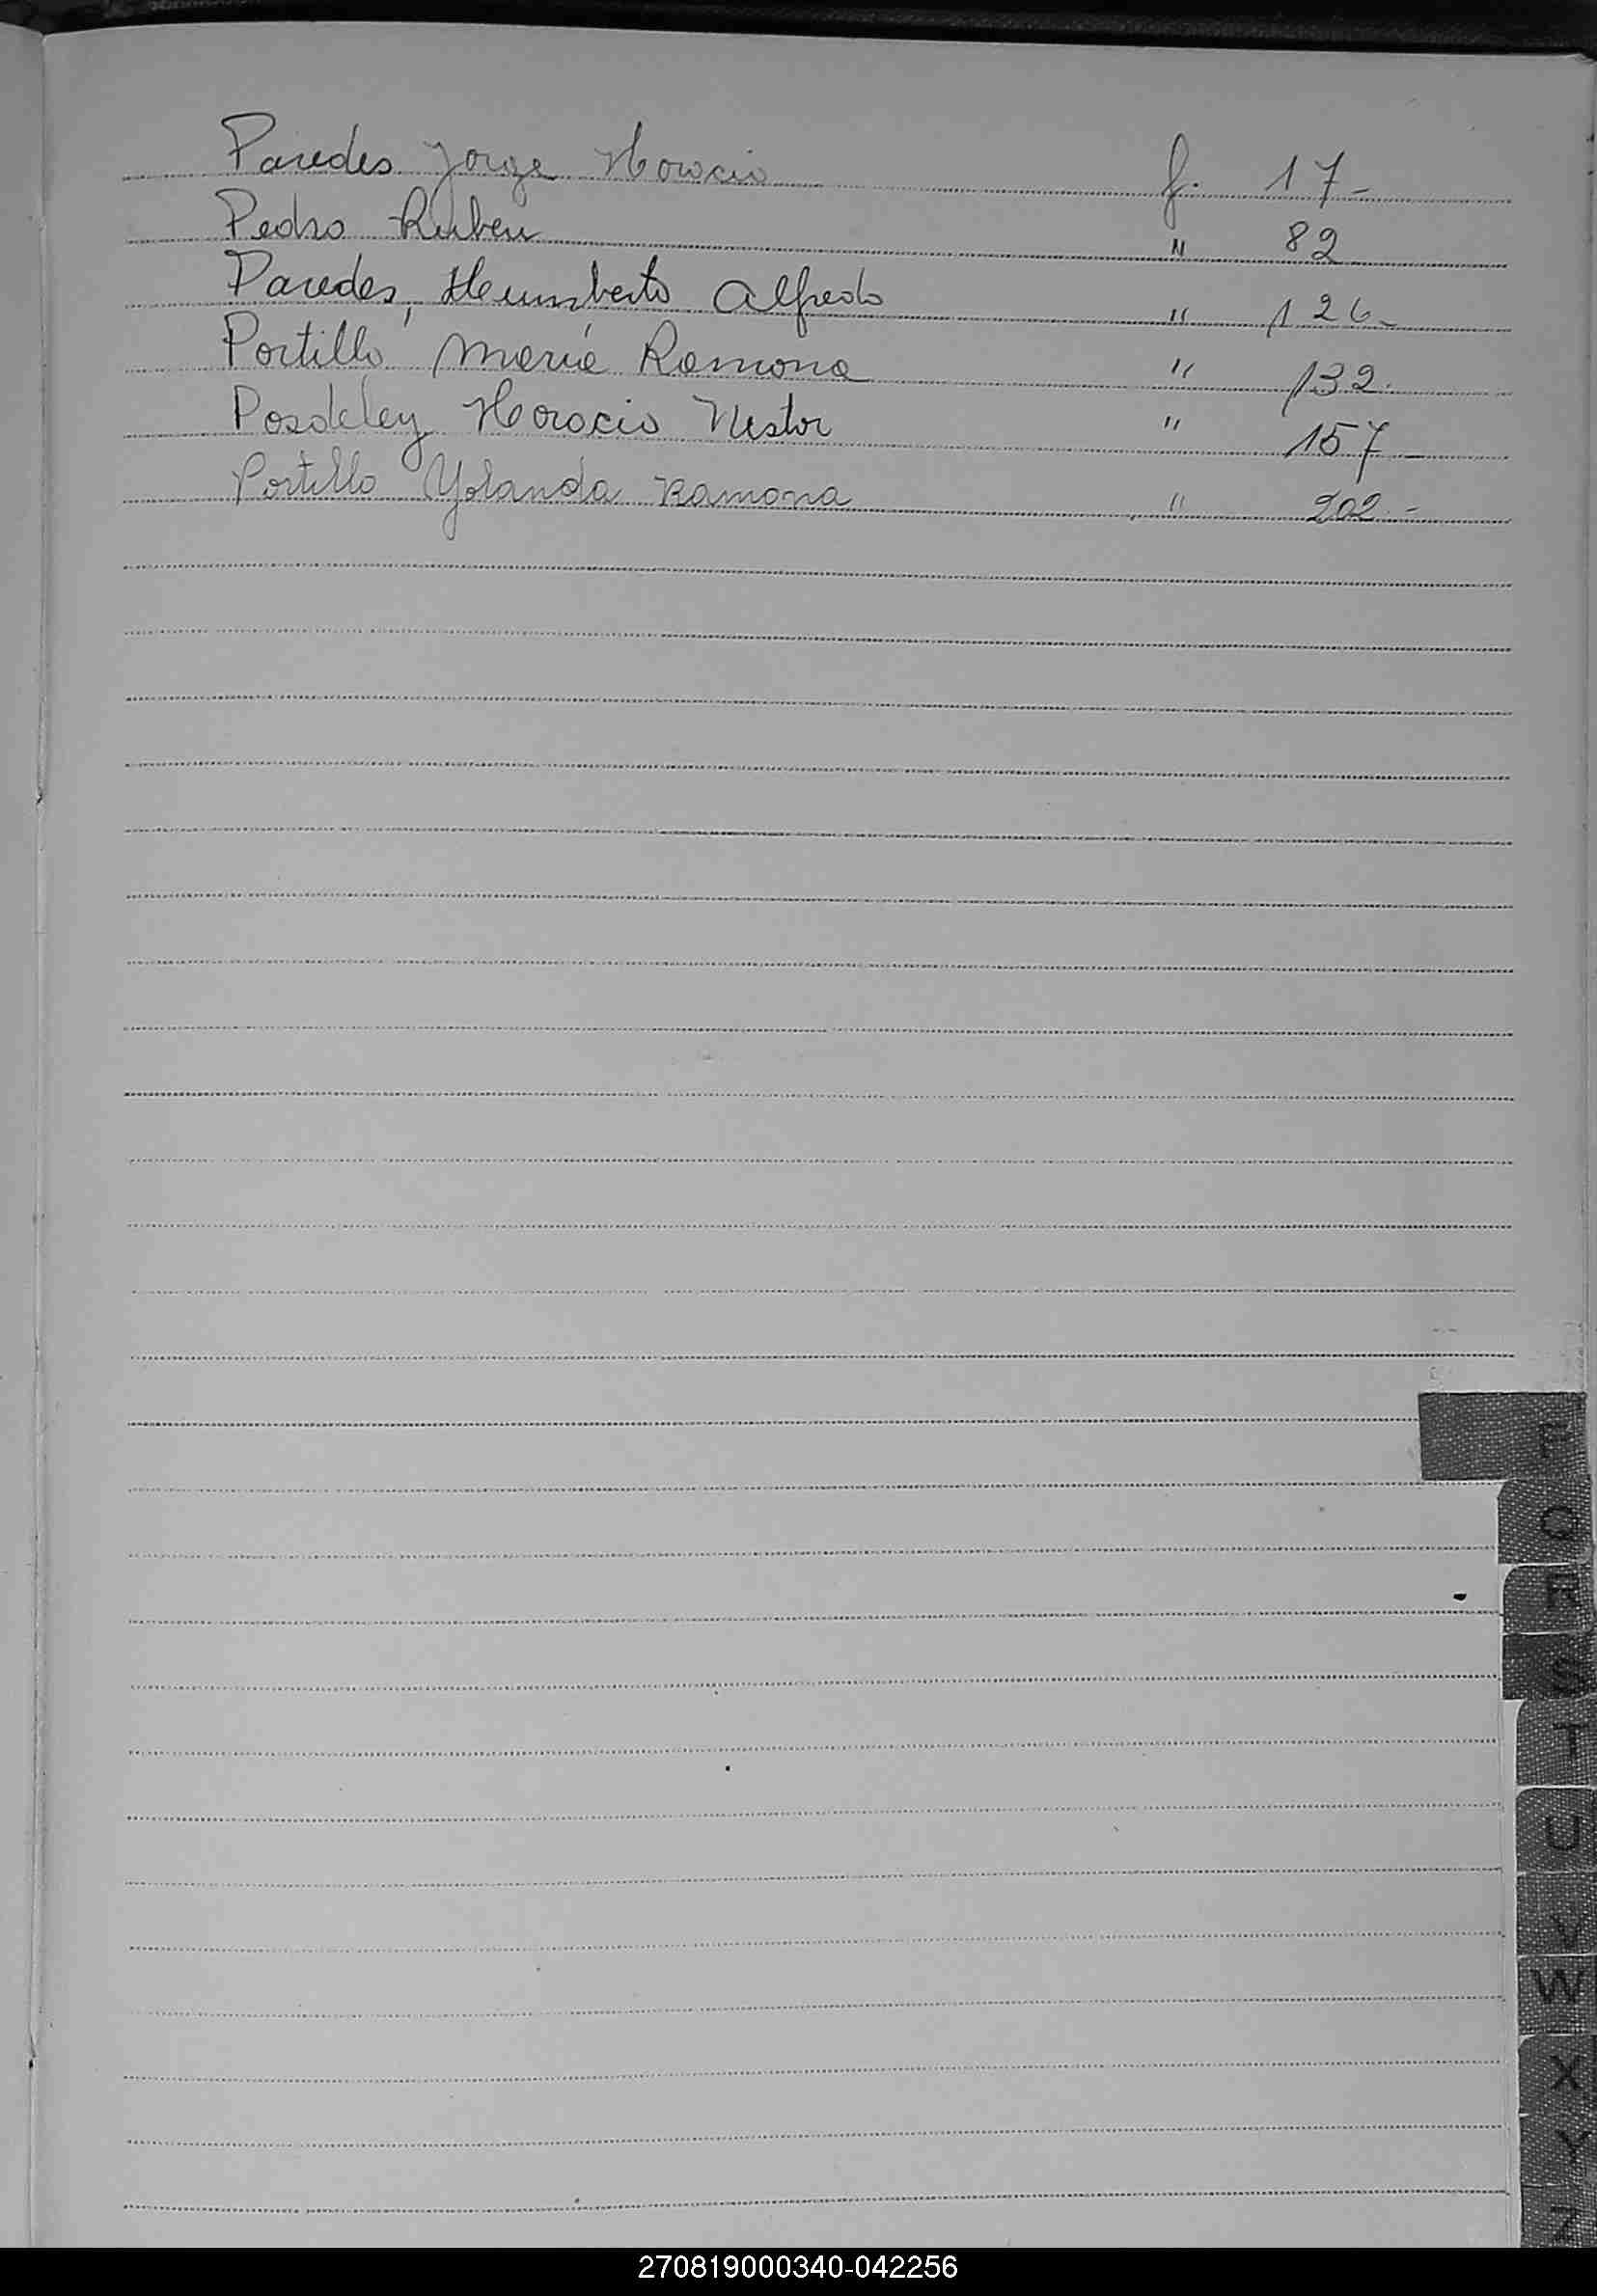 Paredes Jorge Horacio f. 17-
Pedro Ruben " 82
Paredes, Humberto Alfredo " 126-
Portillo Maria Ramona " 132.
Horacio Nestor " 157-
Portillo Yolanda Ramona " 202.-
P
Q
R
S
T
U
V
W
X
Y
Z
270819000340-042256